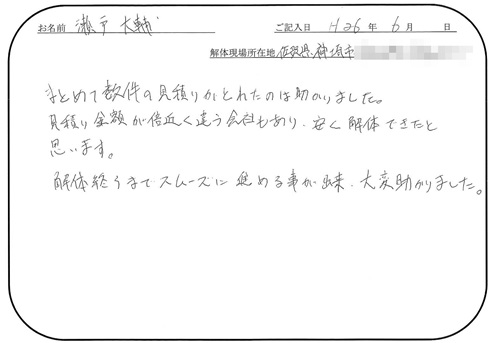 お名前 瀬戸 大輔 ご記入日 H26 年 6 月 日
解体現場所在地 佐賀県神埼市
まとめて数件の見積りがとれたのは助かりました。
見積り金額が倍近く違う会社もあり、安く解体できたと
思います。
解体終うまでスムーズに進める事が出来、大変助かりました。